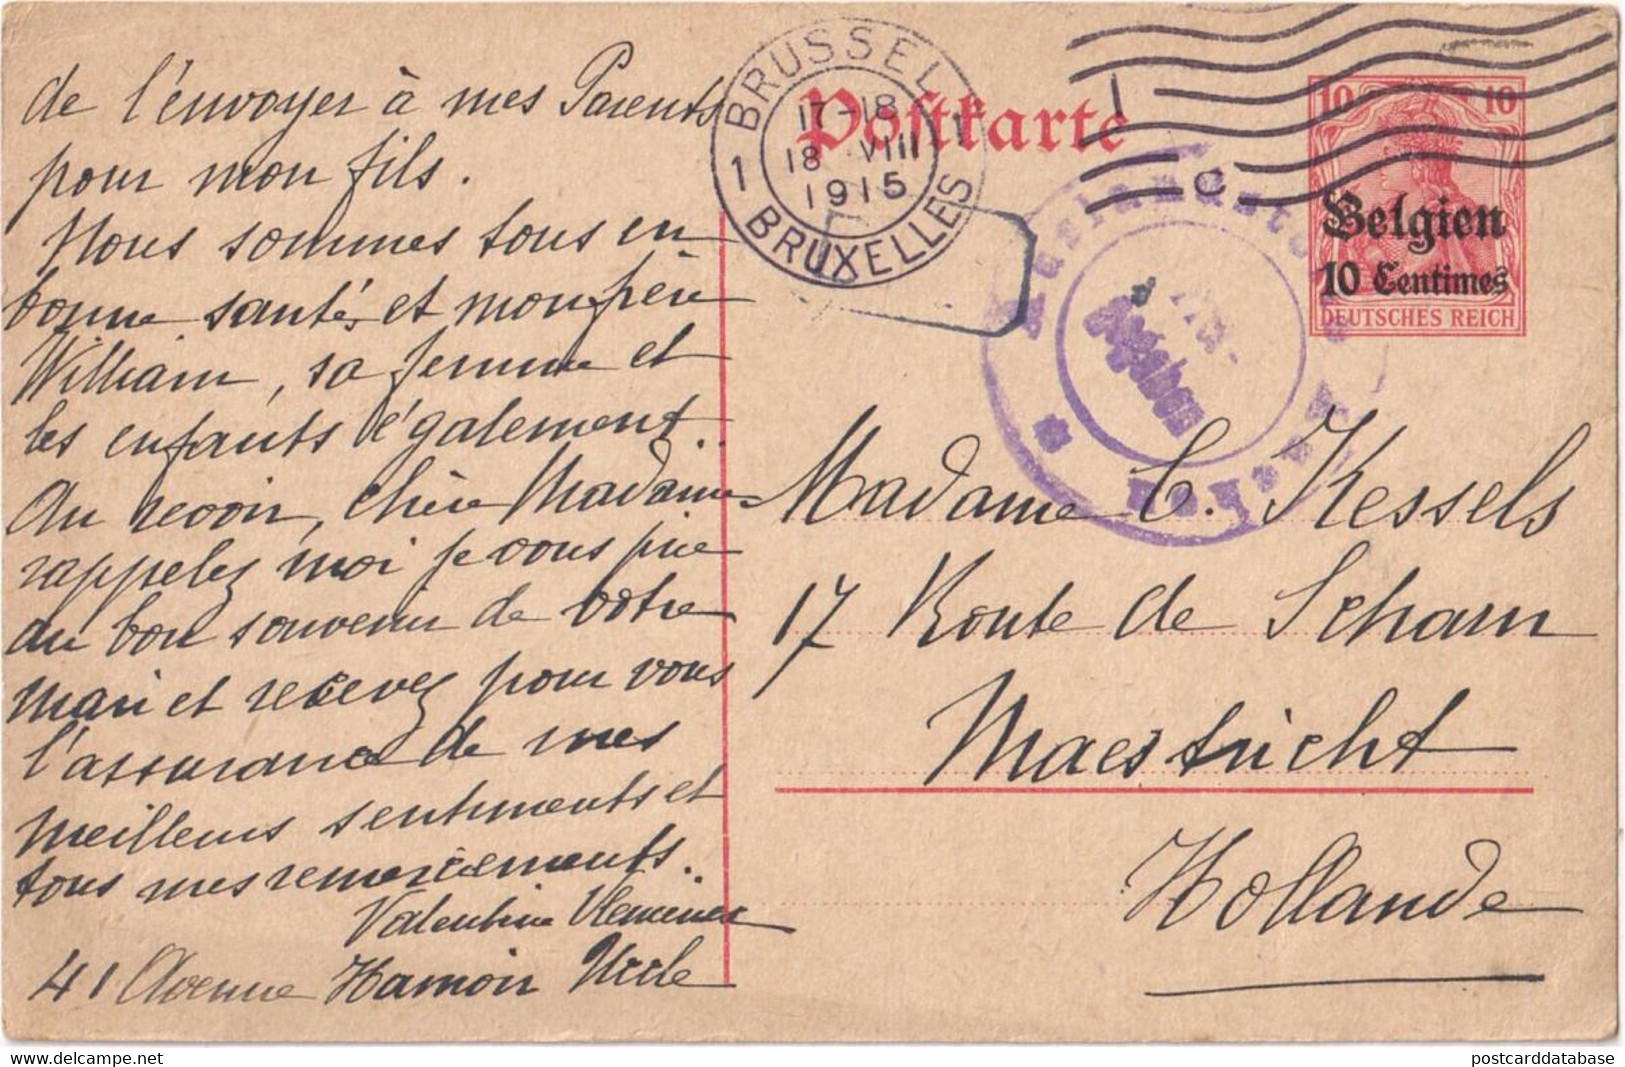 de l'envoyer à mes Parents
pour mon fils.
Nous sommes tous en
bonne santé, et mon père
William, sa femme et
les enfants également.
Au revoir, chère Madame
rappelez moi je vous prie
au bon souvenir de votre
mari et recevez pour vous
l'assurance de mes
meilleurs sentiments et
tous mes remerciements.
Valentine
41 Avenue Hamoir Uccle
BRUSSEL
1 1
17-18
18 VIII
1915
BRUXELLES
Postkarte
10 10
Belgien
10 Centimes
DEUTSCHES REICH
Auslandsst
Frei-
gegeben
Aachen
Madame C. Kessels
17 Route de Scharn
Maestricht
Hollande
delcampe.net
postcarddatabase